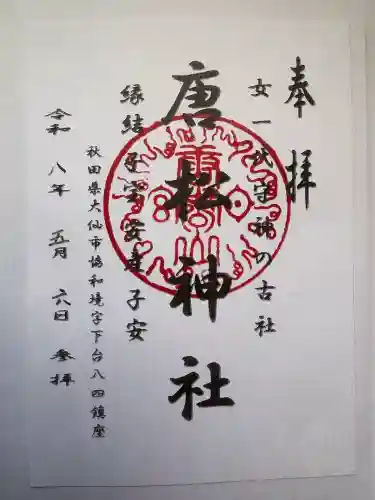 奉拝
女一代守神の古社
唐松神社
縁結 子宝 安産 子安
秋田県大仙市協和境字下台八四鎮座
令和八年 五月 六日 参拝